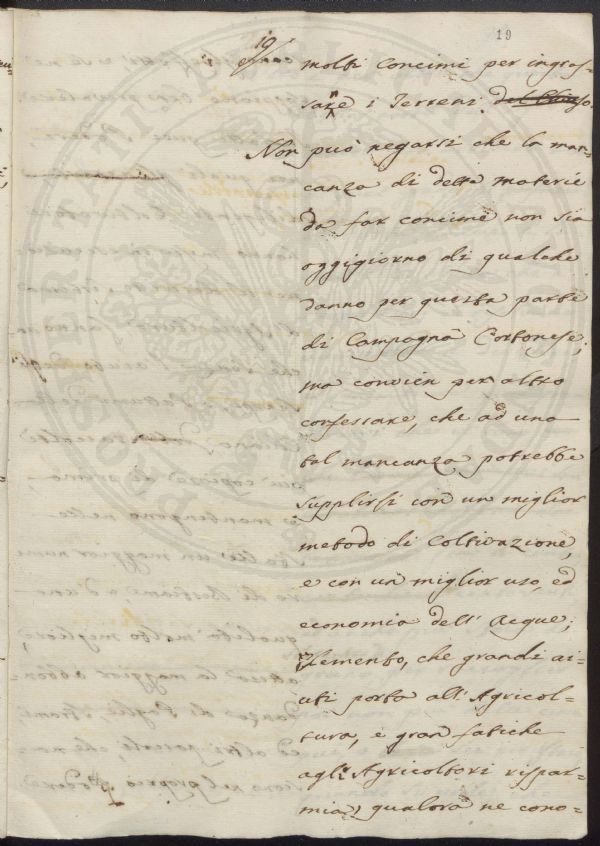 19
19
molti Concimi per ingras-
sare i Terreni
Non può negarsi che la man-
canza di dette materie
da far concime non sia
oggigiorno di qualche
danno per questa parte
di Campagna Cortonese;
ma convien per altro
confessare, che ad una
tal mancanza potrebbe
supplirsi con un miglior
metodo di Coltivazione,
e con un miglior uso, ed
economia dell' Acque;
Elemento, che grandi ai-
uti porta all' Agricol-
tura, e gran fatiche
agli Agricoltori rispar-
mia, qualora ne cono-